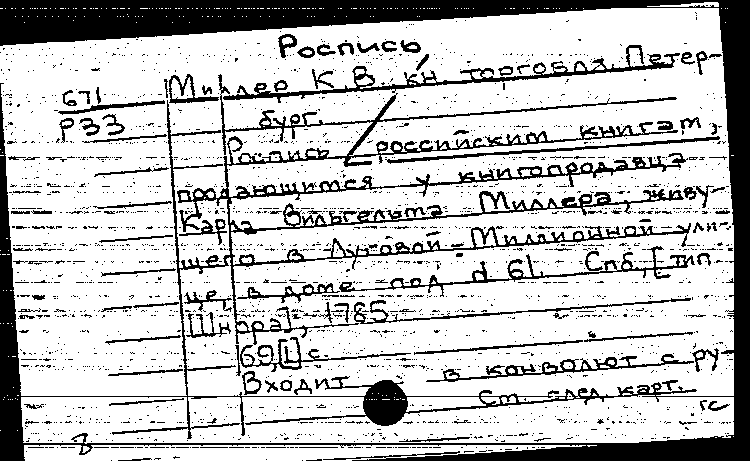 Роспись
671 Миллер, К. В., кн. торговля. Петер-
Р33 бург.
Роспись российским книгам,
продающимся у книгопродавца
Карла Вильгельма Миллера, живу-
щего в Луговой-Миллионной ули-
це, в доме под d 61. Спб., [тип.
Шнора], 1785.
69,[1] с.
Входит в конволют с ру-
См. след. карт.
гс
8